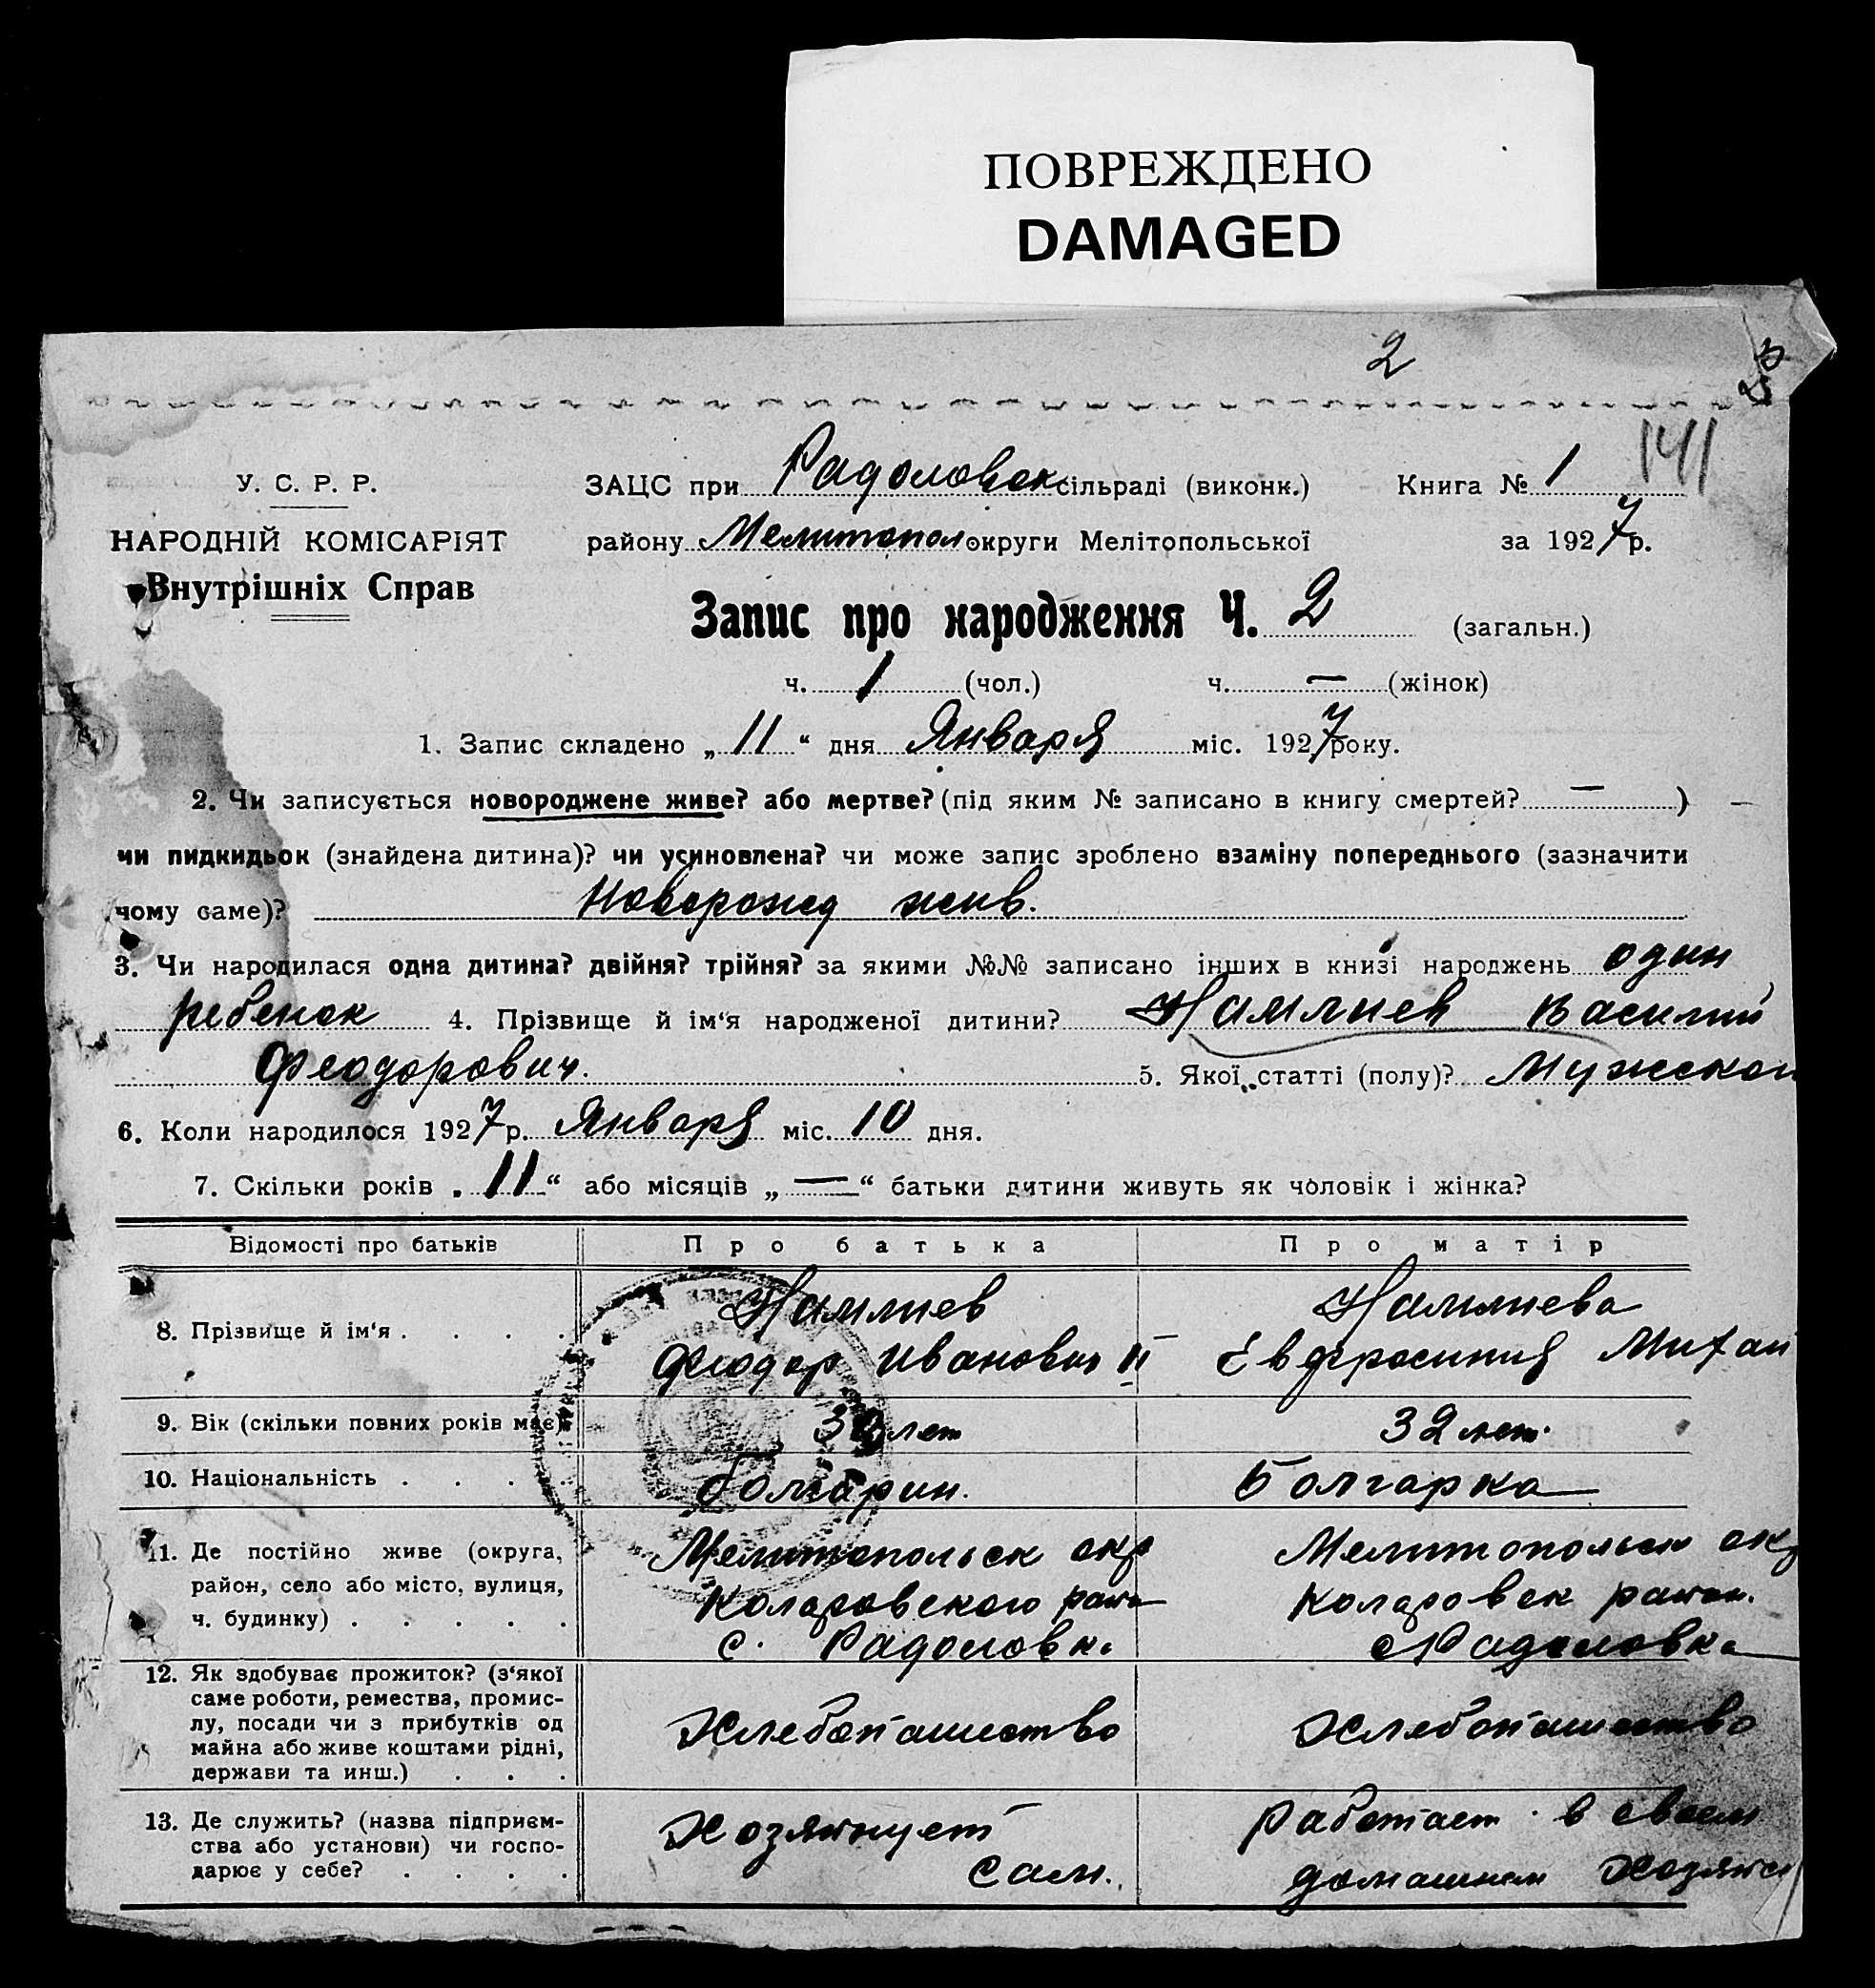 ПОВРЕЖДЕНО
DAMAGED
2
141
У. С. Р. Р.
ЗАЦС при Радоловск сільраді (виконк.) Книга № 1
НАРОДНІЙ КОМІСАРІЯТ
району Мелитопол округи Мелітопольської за 1927 р.
Внутрішніх Справ
Запис про народження Ч. 2 (загальн.)
ч. 1 (чол.) ч. — (жінок)
1. Запис складено „11“ дня Января міс. 1927 року.
2. Чи записується новороджене живе? або мертве? (під яким № записано в книгу смертей? — )
чи пидкидьок (знайдена дитина)? чи усиновлена? чи може запис зроблено взаміну попереднього (зазначити
чому саме)?Новорожд жив.
3. Чи народилася одна дитина? двійня? трійня? за якими №№ записано інших в книзі народжень один
ребенок 4. Прізвище й ім‘я народженої дитини? Намлиев Василий
Феодорович. 5. Якої статті (полу)? Мужской
6. Коли народилося 1927 р. Января міс. 10 дня.
7. Скільки років „11“ або місяців „—“ батьки дитини живуть як чоловік і жінка?
Відомості про батьків Про батька Про матір
8. Прізвище й ім‘я . . . . Намлиев Намлиева
Феодор Иванович II Евдросиния Михаи
9. Вік (скільки повних років має) лет 32 лет.
10. Національність . . . . болгарин. Болгарка
11. Де постійно живе (округа, Мелитопольск окр Мелитопольск окр
район, село або місто, вулиця, Коларовского райо Коларовск район.
ч. будинку) . . . . . с. Радоловк. с Радоловка
12. Як здобуває прожиток? (з‘якої
саме роботи, ремества, промис-
лу, посади чи з прибутків од Хлебопашество Хлебопашество
майна або живе коштами рідні,
держави та инш.) . . .
13. Де служить? (назва підприєм- Хозяинует Работает в своем
ства або установи) чи госпо-
дарює у себе? . . . . Сам. домашнем Хозяйс